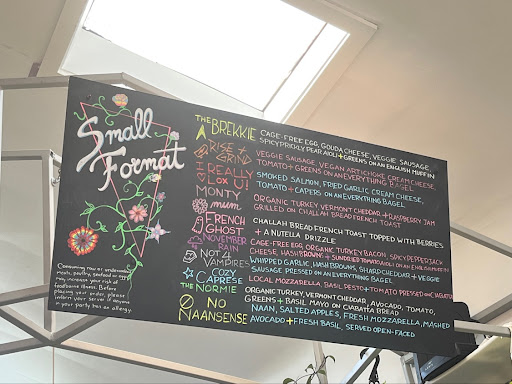 Small
Format
Consuming raw or undercooked
meats, poultry, seafood or eggs
may increase your risk of
foodborne illness. Before
placing your order, please
inform your server if anyone
in your party has an allergy.
THE BREKKIE CAGE-FREE EGG, GOUDA CHEESE, VEGGIE SAUSAGE
SPICY PRICKLY PEAR AIOLI + GREENS ON AN ENGLISH MUFFIN
RISE + GRIND VEGGIE SAUSAGE, VEGAN ARTICHOKE CREAM CHEESE,
TOMATO + GREENS ON AN EVERYTHING BAGEL
I REALLY LOX U! SMOKED SALMON, FRIED GARLIC, CREAM CHEESE,
TOMATO + CAPERS ON AN EVERYTHING BAGEL
MONTY mum ORGANIC TURKEY, VERMONT CHEDDAR + RASPBERRY JAM
GRILLED ON CHALLAH BREAD FRENCH TOAST
FRENCH GHOST CHALLAH BREAD FRENCH TOAST TOPPED WITH BERRIES
+ A NUTELLA DRIZZLE
NOVEMBER RAIN CAGE-FREE EGG, ORGANIC TURKEY BACON, SPICY PEPPERJACK
CHEESE, HASH BROWN + SUNDRIED TOMATO AIOLI ON AN ENGLISH MUFFIN
NOT 4 VAMPIRES WHIPPED GARLIC, HASH BROWNS, SHARP CHEDDAR + VEGGIE
SAUSAGE PRESSED ON AN EVERYTHING BAGEL
COZY CAPRESE LOCAL MOZZARELLA, BASIL PESTO + TOMATO PRESSED ON CIABATTA
THE NORMIE ORGANIC TURKEY, VERMONT CHEDDAR, AVOCADO, TOMATO,
GREENS + BASIL MAYO ON CIABATTA BREAD
NO NAANSENSE NAAN, SALTED APPLES, FRESH MOZZARELLA, MASHED
AVOCADO + FRESH BASIL, SERVED OPEN-FACED